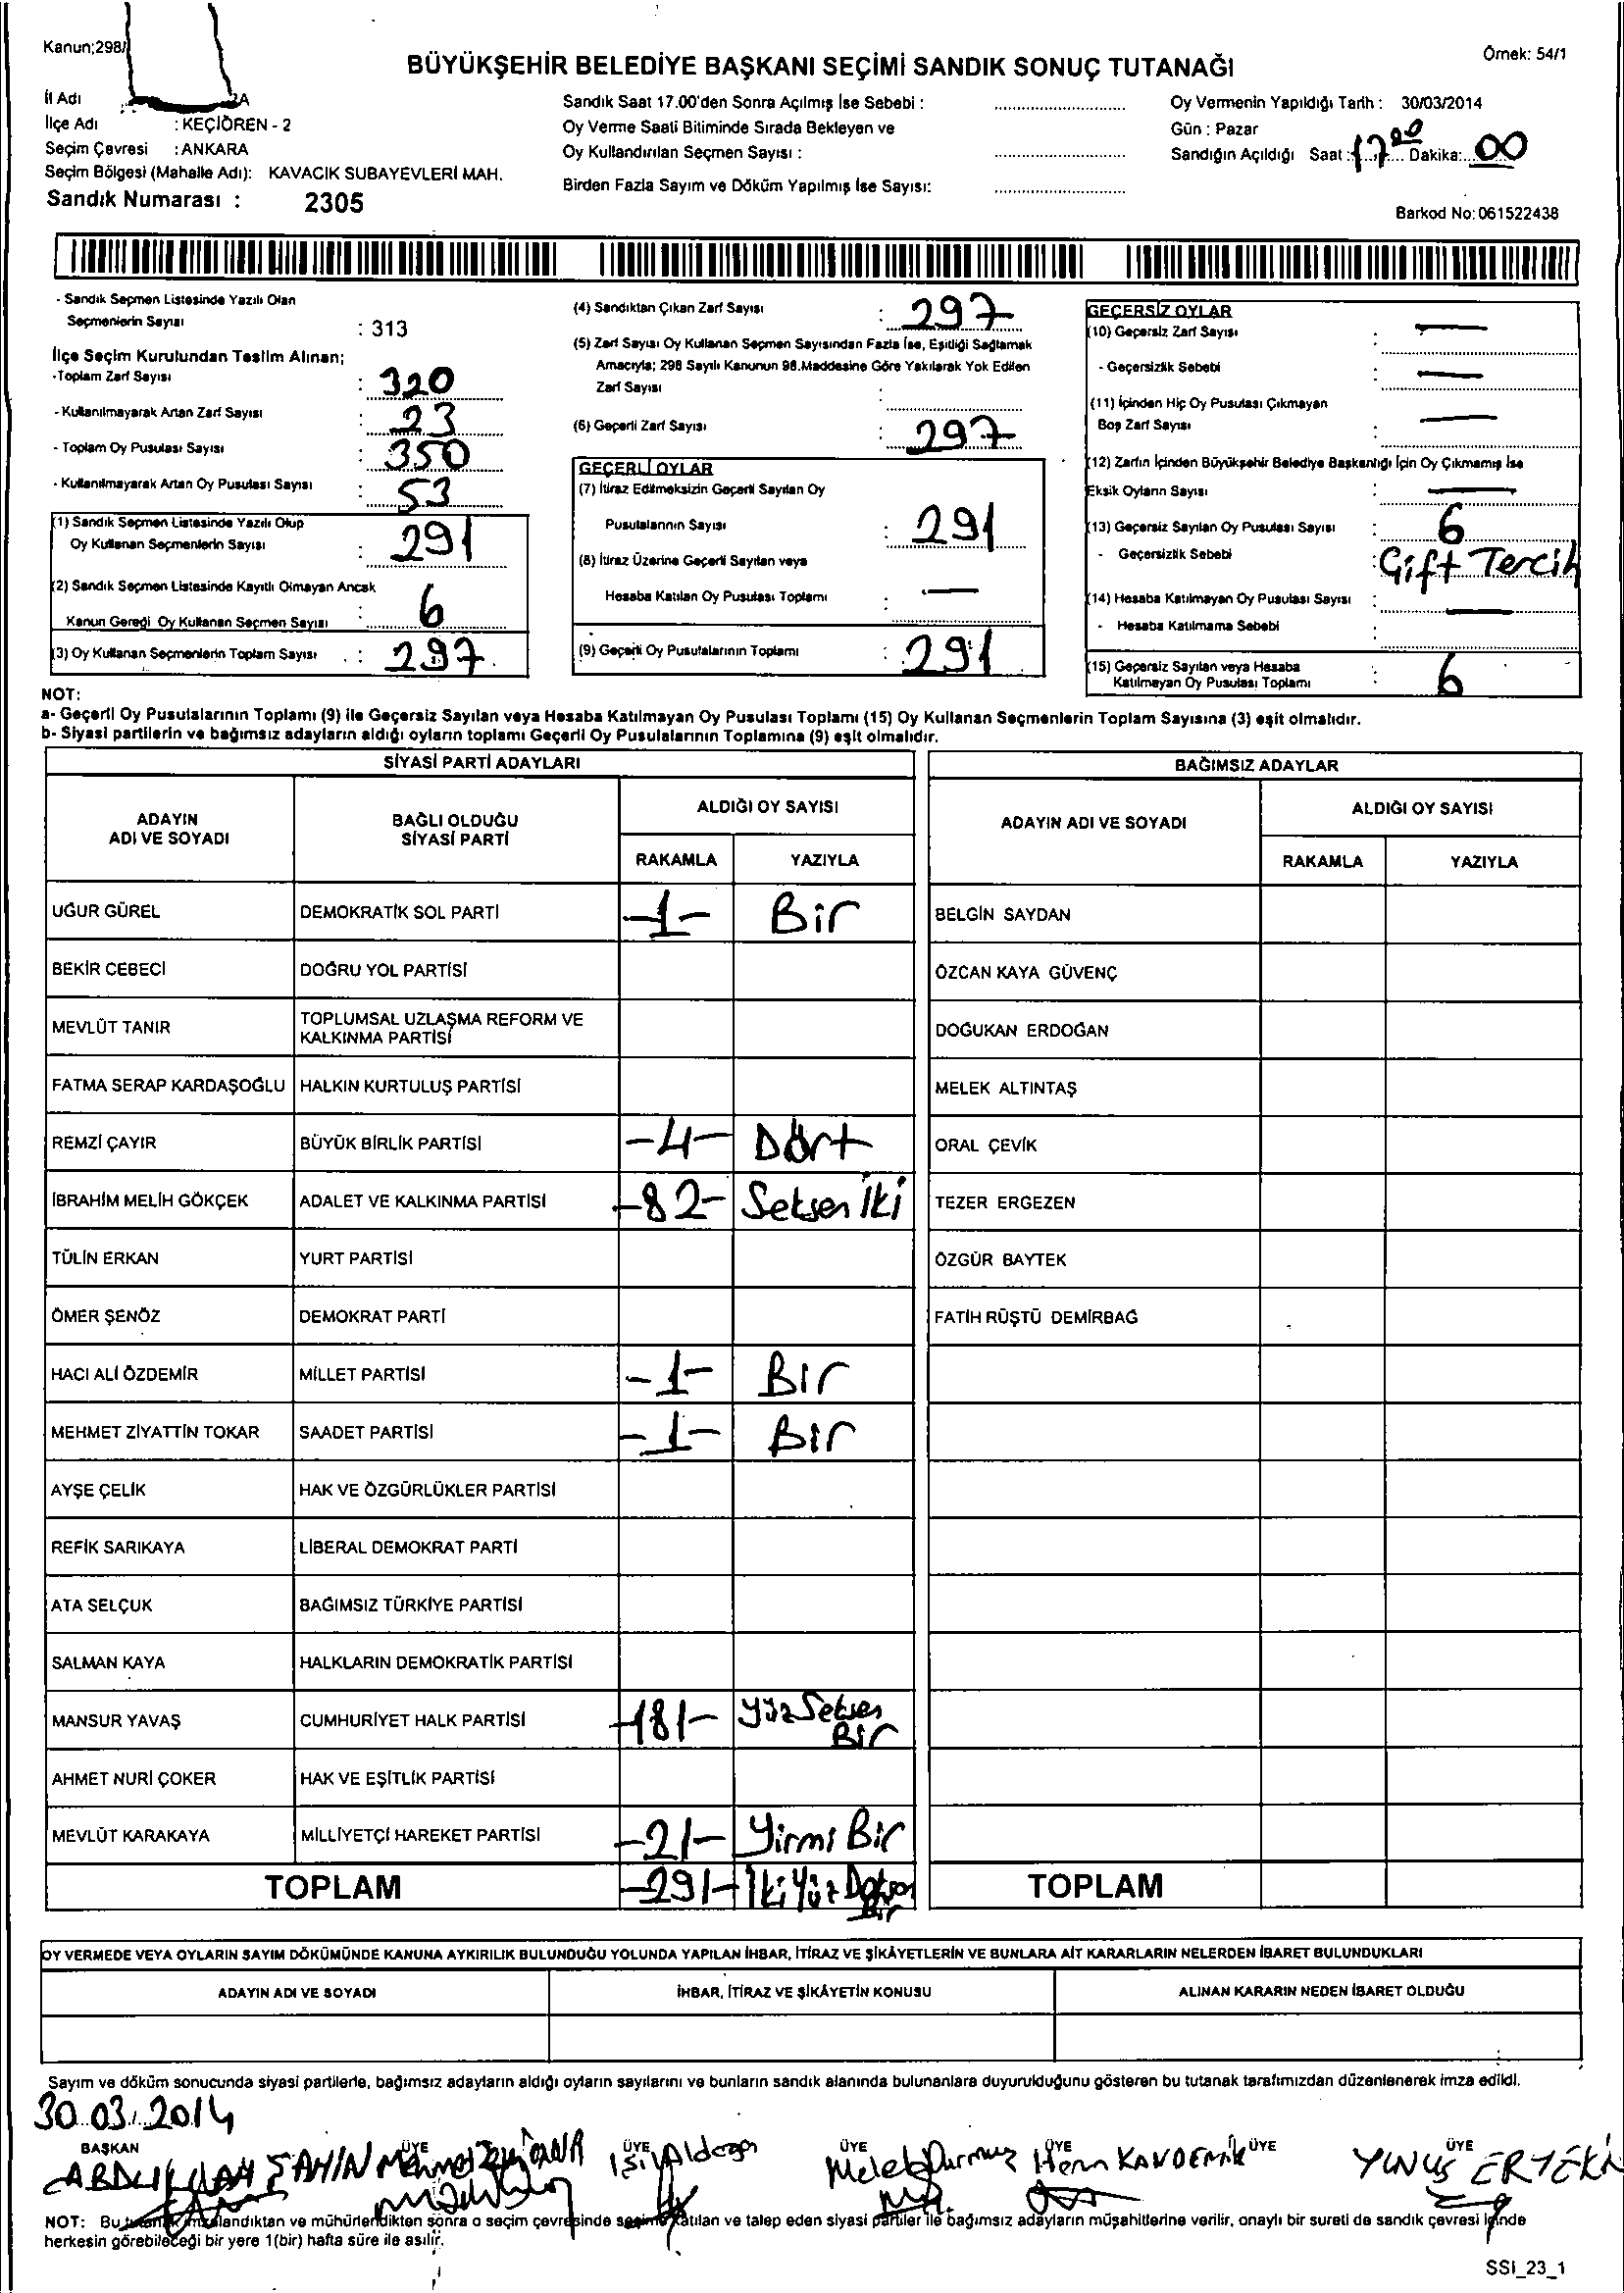 Kanun;298/
Örnek: 54/1
BÜYÜKŞEHİR BELEDİYE BAŞKANI SEÇİMİ SANDIK SONUÇ TUTANAĞI
İl Adı
İlçe Adı : KEÇİÖREN - 2
Seçim Çevresi : ANKARA
Seçim Bölgesi (Mahalle Adı): KAVACIK SUBAYEVLERİ MAH.
Sandık Numarası : 2305
Sandık Saat 17.00'den Sonra Açılmış İse Sebebi :
Oy Verme Saati Bitiminde Sırada Bekleyen ve
Oy Kullandırılan Seçmen Sayısı :
Birden Fazla Sayım ve Döküm Yapılmış İse Sayısı:
Oy Vermenin Yapıldığı Tarih : 30/03/2014
Gün : Pazar
Sandığın Açıldığı Saat : 17 00 Dakika: 00
Barkod No: 061522438
- Sandık Seçmen Listesinde Yazılı Olan
Seçmenlerin Sayısı : 313
İlçe Seçim Kurulundan Teslim Alınan;
-Toplam Zarf Sayısı : 320
- Kullanılmayarak Artan Zarf Sayısı : 23
- Toplam Oy Pusulası Sayısı : 350
- Kullanılmayarak Artan Oy Pusulası Sayısı : 53
(1) Sandık Seçmen Listesinde Yazılı Olup
Oy Kullanan Seçmenlerin Sayısı : 291
(2) Sandık Seçmen Listesinde Kayıtlı Olmayan Ancak
Kanun Gereği Oy Kullanan Seçmen Sayısı : 6
(3) Oy Kullanan Seçmenlerin Toplam Sayısı : 297
(4) Sandıktan Çıkan Zarf Sayısı : 297
(5) Zarf Sayısı Oy Kullanan Seçmen Sayısından Fazla İse, Eşitliği Sağlamak
Amacıyla; 298 Sayılı Kanunun 98.Maddesine Göre Yakılarak Yok Edilen
Zarf Sayısı :
(6) Geçerli Zarf Sayısı : 297
GEÇERLİ OYLAR
(7) İtiraz Edilmeksizin Geçerli Sayılan Oy
Pusulalarının Sayısı : 291
(8) İtiraz Üzerine Geçerli Sayılan veya
Hesaba Katılan Oy Pusulası Toplamı : —
(9) Geçerli Oy Pusulalarının Toplamı : 291
GEÇERSİZ OYLAR
(10) Geçersiz Zarf Sayısı : —
- Geçersizlik Sebebi : —
(11) İçinden Hiç Oy Pusulası Çıkmayan
Boş Zarf Sayısı : —
(12) Zarfın İçinden Büyükşehir Belediye Başkanlığı İçin Oy Çıkmamış İse
Eksik Oyların Sayısı : —
(13) Geçersiz Sayılan Oy Pusulası Sayısı : 6
- Geçersizlik Sebebi : Çift Tercih
(14) Hesaba Katılmayan Oy Pusulası Sayısı : —
- Hesaba Katılmama Sebebi :
(15) Geçersiz Sayılan veya Hesaba
Katılmayan Oy Pusulası Toplamı : 6
NOT:
a- Geçerli Oy Pusulalarının Toplamı (9) ile Geçersiz Sayılan veya Hesaba Katılmayan Oy Pusulası Toplamı (15) Oy Kullanan Seçmenlerin Toplam Sayısına (3) eşit olmalıdır.
b- Siyasi partilerin ve bağımsız adayların aldığı oyların toplamı Geçerli Oy Pusulalarının Toplamına (9) eşit olmalıdır.
SİYASİ PARTİ ADAYLARI
ADAYIN ADI VE SOYADI
BAĞLI OLDUĞU SİYASİ PARTİ
ALDIĞI OY SAYISI
RAKAMLA YAZIYLA
UĞUR GÜREL DEMOKRATİK SOL PARTİ -1- Bir
BEKİR CEBECİ DOĞRU YOL PARTİSİ
MEVLÜT TANIR TOPLUMSAL UZLAŞMA REFORM VE
KALKINMA PARTİSİ
FATMA SERAP KARDAŞOĞLU HALKIN KURTULUŞ PARTİSİ
REMZİ ÇAYIR BÜYÜK BİRLİK PARTİSİ -4- Dört
İBRAHİM MELİH GÖKÇEK ADALET VE KALKINMA PARTİSİ -82- Seksen İki
TÜLİN ERKAN YURT PARTİSİ
ÖMER ŞENÖZ DEMOKRAT PARTİ
HACI ALİ ÖZDEMİR MİLLET PARTİSİ -1- Bir
MEHMET ZİYATTİN TOKAR SAADET PARTİSİ -1- Bir
AYŞE ÇELİK HAK VE ÖZGÜRLÜKLER PARTİSİ
REFİK SARIKAYA LİBERAL DEMOKRAT PARTİ
ATA SELÇUK BAĞIMSIZ TÜRKİYE PARTİSİ
SALMAN KAYA HALKLARIN DEMOKRATİK PARTİSİ
MANSUR YAVAŞ CUMHURİYET HALK PARTİSİ -181- Yüz Seksen
Bir
AHMET NURİ ÇOKER HAK VE EŞİTLİK PARTİSİ
MEVLÜT KARAKAYA MİLLİYETÇİ HAREKET PARTİSİ -21- Yirmi Bir
TOPLAM -291- İki Yüz Doksan
Bir
BAĞIMSIZ ADAYLAR
ADAYIN ADI VE SOYADI
ALDIĞI OY SAYISI
RAKAMLA YAZIYLA
BELGİN SAYDAN
ÖZCAN KAYA GÜVENÇ
DOĞUKAN ERDOĞAN
MELEK ALTINTAŞ
ORAL ÇEVİK
TEZER ERGEZEN
ÖZGÜR BAYTEK
FATİH RÜŞTÜ DEMİRBAĞ
TOPLAM
OY VERMEDE VEYA OYLARIN SAYIM DÖKÜMÜNDE KANUNA AYKIRILIK BULUNDUĞU YOLUNDA YAPILAN İHBAR, İTİRAZ VE ŞİKÂYETLERİN VE BUNLARA AİT KARARLARIN NELERDEN İBARET BULUNDUKLARI
ADAYIN ADI VE SOYADI İHBAR, İTİRAZ VE ŞİKÂYETİN KONUSU ALINAN KARARIN NEDEN İBARET OLDUĞU
Sayım ve döküm sonucunda siyasi partilerle, bağımsız adayların aldığı oyların sayılarını ve bunların sandık alanında bulunanlara duyurulduğunu gösteren bu tutanak tarafımızdan düzenlenerek imza edildi.
30.03.2014
BAŞKAN ÜYE ÜYE ÜYE ÜYE ÜYE ÜYE
ŞAHİN Melek Durmuz KAVDEMİR YUNUS ERTEKİN
NOT: Bu tutanak imzalandıktan ve mühürlendikten sonra o seçim çevresinde seçime katılan ve talep eden siyasi partiler ile bağımsız adayların müşahitlerine verilir, onaylı bir sureti de sandık çevresi içinde
herkesin görebileceği bir yere 1(bir) hafta süre ile asılır.
SSI_23_1